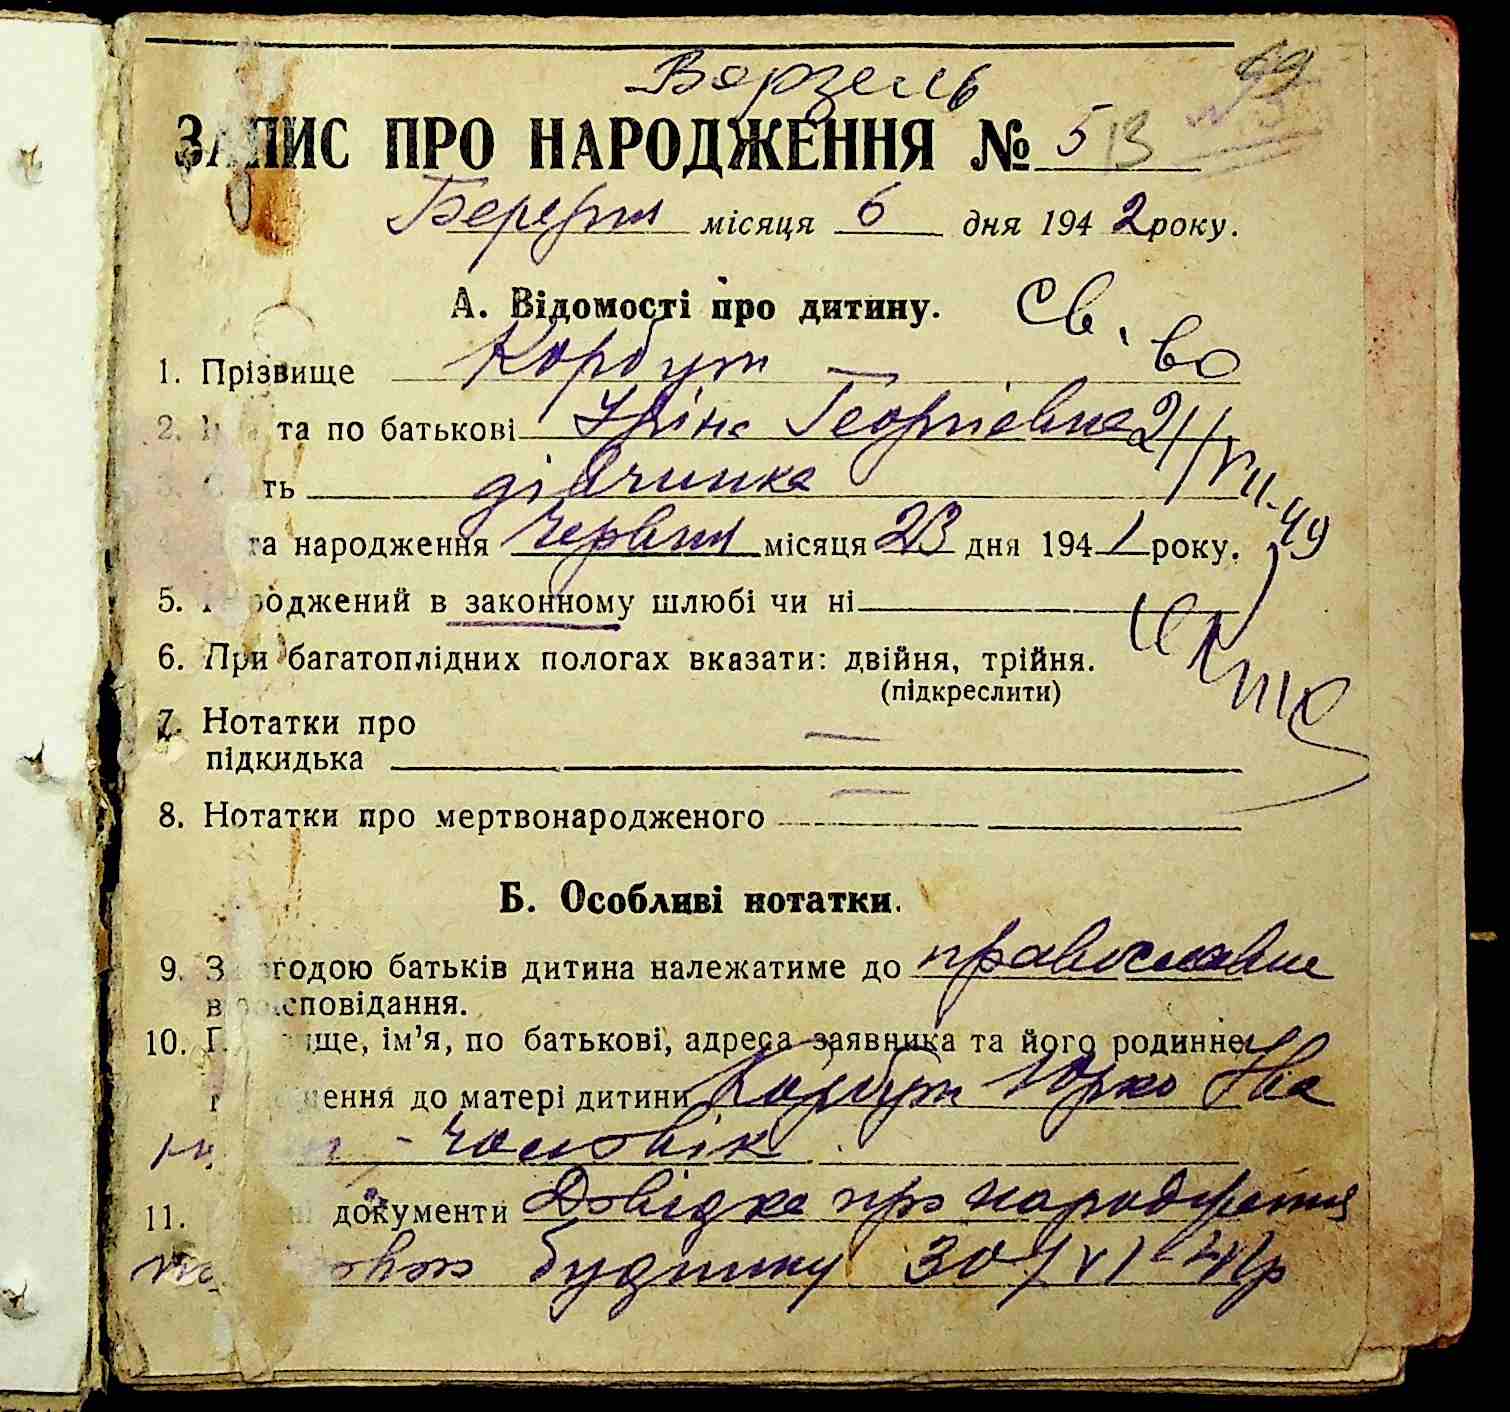 Ворзель
69
ЗАПИС ПРО НАРОДЖЕННЯ № 513
Березня місяця 6 дня 1942 року.
А. Відомості про дитину.
Св.
во
1. Прізвище Корбут —
2. та по батькові Ірина Георгіевна
21/VII-49
3. дівчинка
та народження червня місяця 23 дня 1941 року.
5. Народжений в законному шлюбі чи ні
6. При багатоплідних пологах вказати: двійня, трійня.
(підкреслити)
7. Нотатки про —
підкидька
8. Нотатки про мертвонародженого —
Б. Особливі нотатки.
9. За згодою батьків дитина належатиме до православне
віросповідання.
10. ім'я, по батькові, адреса заявника та його родинне
до матері дитини Корбут Юрко Іва
- чоловік
11. документи Довідка про народження
будинку 30/VI-41р